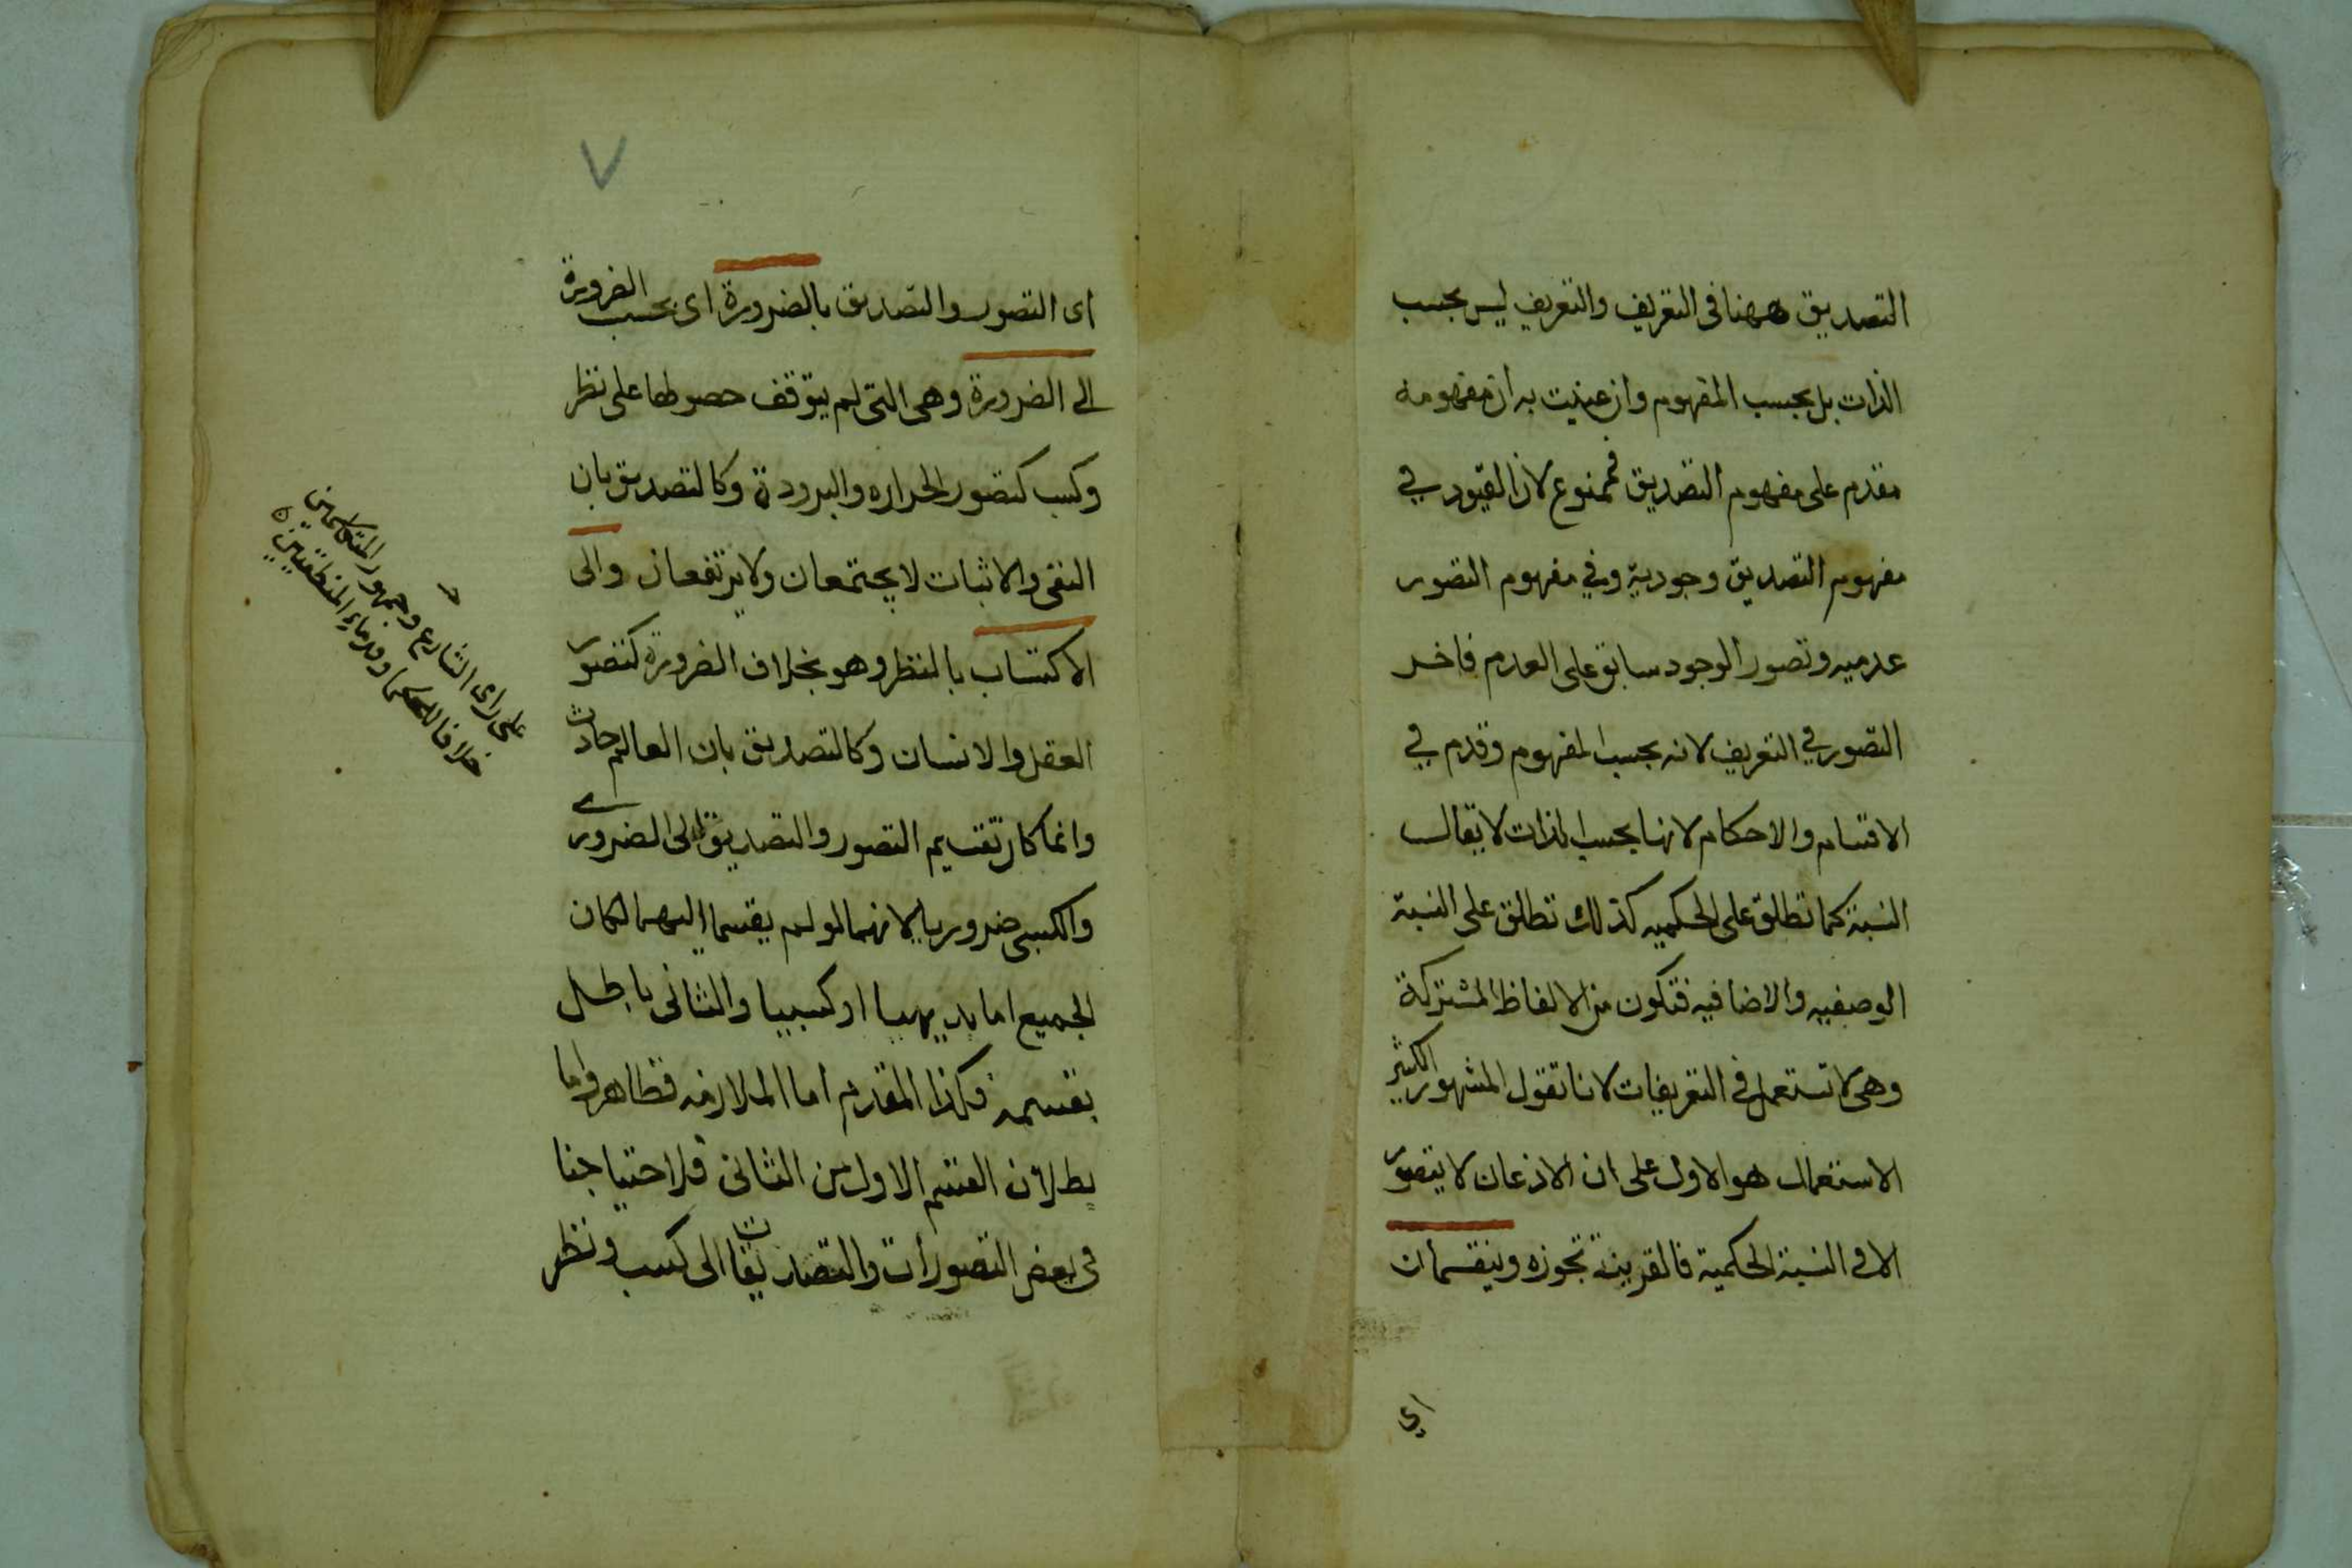 التصديق ههنا فى التعريف والتعريف ليس بحسب
الذات بل بحسب المفهوم وان عنيت به ان مفهومه
مقدم على مفهوم التصديق فممنوع لان القيود في
مفهوم التصديق وجودية وفي مفهوم التصور
عدميه وتصور الوجود سابق على العدم فاخر
التصور في التعريف لانه بحسب المفهوم وقدم في
الاقسام والاحكام لانها بحسب الذات لا يقال
النسبة كما تطلق على الحكميه كذلك تطلق على النسبة
الوصفيه والاضافيه فتكون من الالفاظ المشتركة
وهى لا تستعمل فى التعريفات لانا نقول المشهور الكثير
الاستعمال هو الاول على ان الاذعان لا يتصور
الا فى النسبة الحكمية فالقرينة تجوزه وينقسمان
اي
٧
اى التصور والتصديق بالضرورة اى بحسب الضرورة
الى الضرورة وهى التى لم يتوقف حصولها على نظر
وكسب كتصور الحراره والبرودة وكالتصديق بان
النفى والاثبات لا يجتمعان ولا يرتفعان والى
الاكتساب بالنظر وهو بخلاف الضرورة كتصور
العقل والانسان وكالتصديق بان العالم حادث
وانما كان تقسيم التصور والتصديق الى الضرورى
والكسبى ضروريا لانهما لو لم يقسما اليهما لكان
الجميع اما بديهيا او كسبيا والثانى باطل
بقسميه فكذا المقدم اما الملازمه فظاهر واما
بطلان القسم الاول من الثانى فلاحتياجنا
فى بعض التصورات والتصديقات الى كسب ونظر
على راى الشارع وجمهور المتكلمين
خلافا للحكما وقدماء المنطقيين